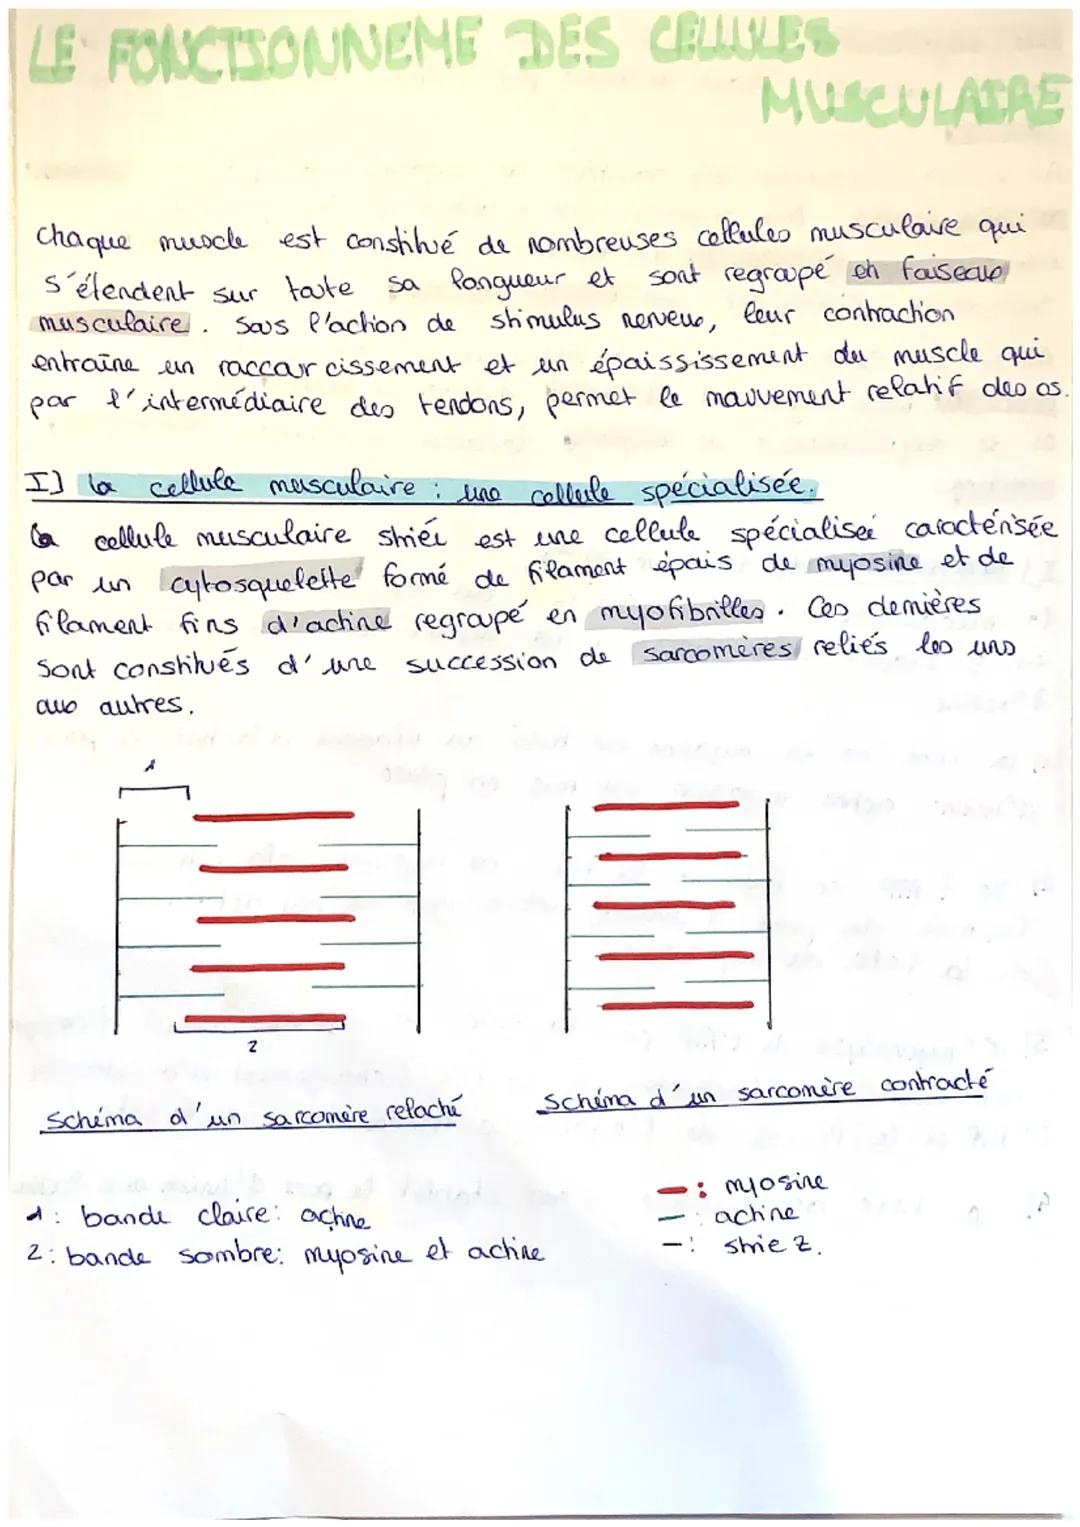 LE FONCTIONNEME DES CELLULES
MUSCULAIRE
Chaque muscle est constitué de nombreuses cellules musculaire qui
s'étendent sur toute sa longueur et sont regroupé en faiseaux
musculaire. Sous l'action de stimulus nerveux, leur contraction
entraîne un raccourcissement et un épaississement du muscle qui
par l'intermédiaire des tendons, permet le mouvement relatif des os.
I] la cellule musculaire : une cellule spécialisée.
La cellule musculaire striéé est une cellule spécialiseé caractérisée
par un cytosquelette formé de filament épais de myosine et de
filament fins d'actine regroupé en myofibrilles. Ces dernières
sont constitués d'une succession de sarcomères reliés les uns
aux autres.
1
2
Schéma d'un sarcomère relaché
Schéma d'un sarcomère contracté
1: bande claire: actine
2: bande sombre: myosine et actine
—: myosine
—: actine
—: strie Z.